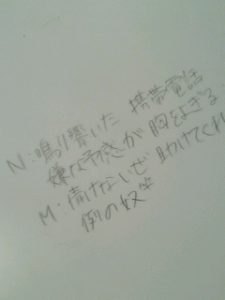 N:鳴り響いた 携帯電話
嫌な予感が 胸をよぎる
M:情けないぜ 助けてくれ
例の奴